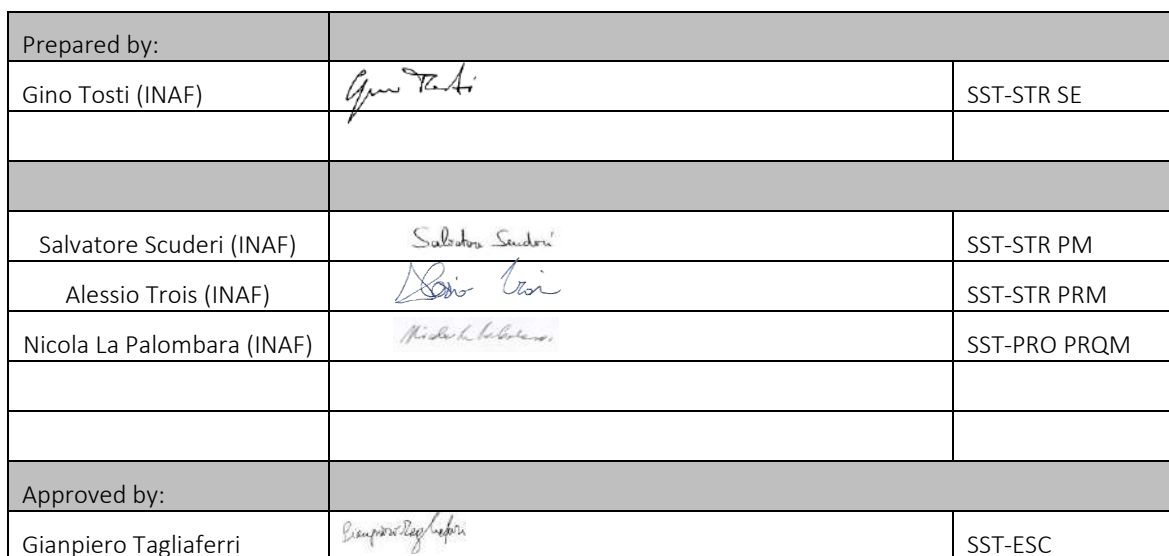 Prepared by:
Gino Tosti (INAF) Gino Tosti SST-STR SE
Salvatore Scuderi (INAF) Salvatore Scuderi SST-STR PM
Alessio Trois (INAF) Alessio Trois SST-STR PRM
Nicola La Palombara (INAF) Nicola La Palombara SST-PRO PRQM
Approved by:
Gianpiero Tagliaferri Gianpiero Tagliaferri SST-ESC